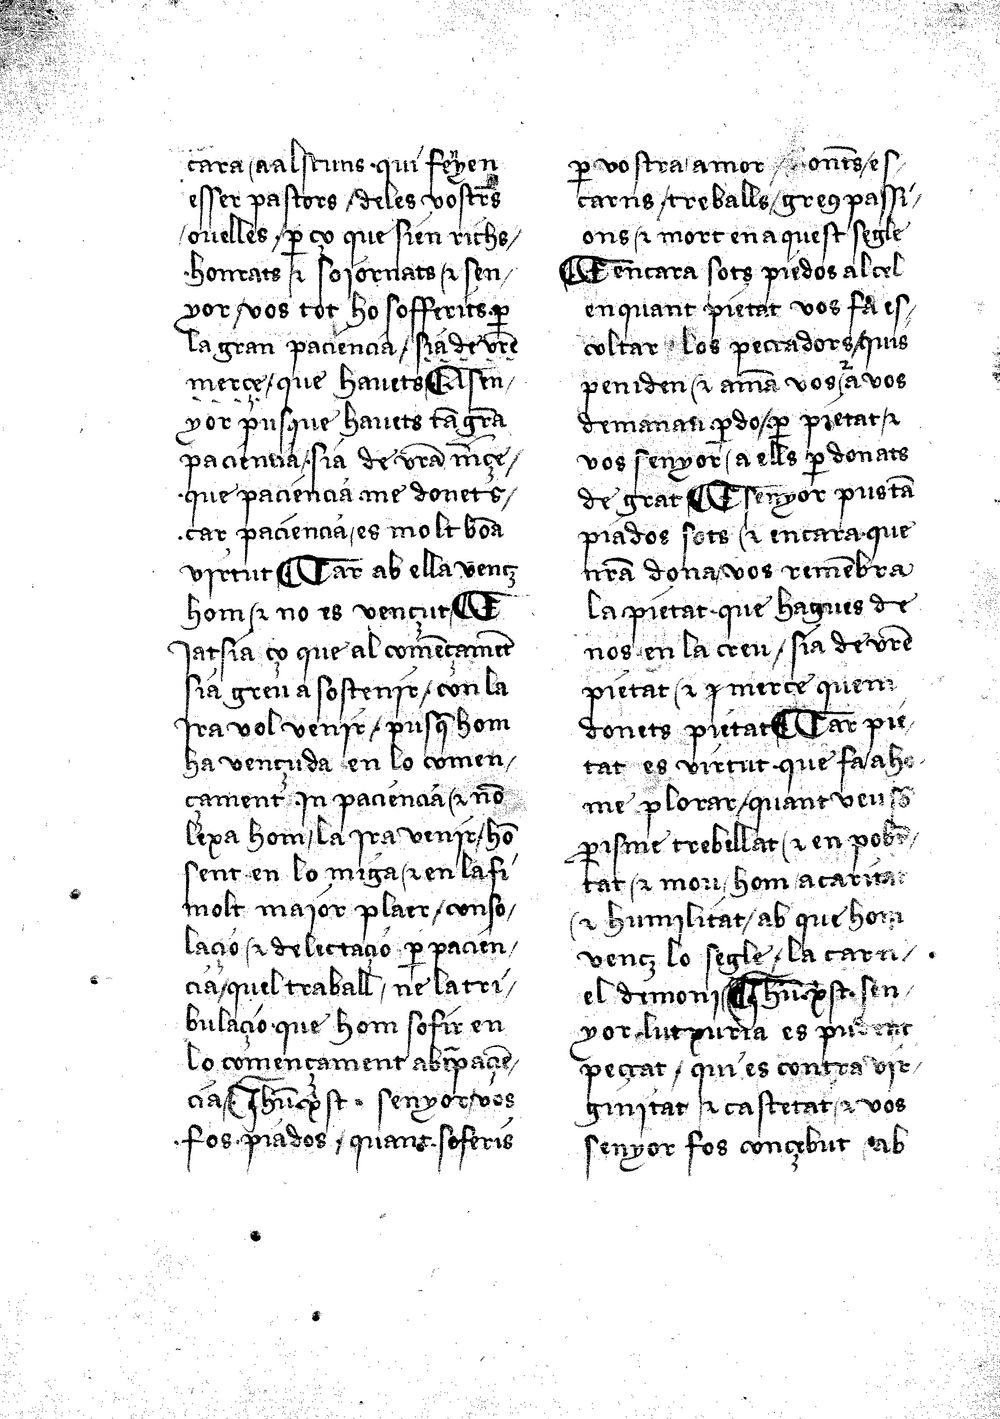 cara / a alscuns · qui feÿen
esser pastors / deles vostrs̄
/ ouelles / ꝑ ço que sien richs /
· honrats ⁊ soiornats ⁊ sen /
yor / vos tot ho sofferits · ꝑ
la gran paciencia / sia de vr̄e
merçe / que hauets ¶ A sen /
yor pusque hauets tā gr̄a
paciencia / sia de vr̄a m̄çe /
· que paciencia me donets /
· car paciencia / es molt bōa
virtut ¶ Car ab ella vencȝ
hom / ⁊ no es vençut / ¶ E
Iatsia ço que al comēçamēt
sia greu a sostenir / con la
Ira vol venir / pusq̄ hom
ha vençuda en lo comen /
çament In paciencia / ⁊ nō
lexa hom / la Ira venir / hō
sent en lo miga / ⁊ en la fi
molt maior plaer / conso /
lacio / ⁊ delectacio ꝑ pacien /
cia / quel traball / ne la tri /
bulacio · que hom sofir en
lo començament ab īpaciē /
cia / ¶ Ihū xp̄st · senyor / vos
· fos · piados / quant · soferis
ꝑ vostra amor / ontēs / es /
carns / treballs / greꝯ passi /
ons / ⁊ mort en aquest segle
¶ E encara sots piedos al cel
en quant pietat vos fa es /
coltar los peccadors / quis
peniden / ⁊ amā vos / ⁊ a vos
demanan ꝑdo / ꝑ pietat / ⁊
vos senyor / a ells ꝑdonats
de grat ¶ E senyor pus tā
piados sots / ⁊ encara · que
nr̄a dona / vos remēbra
la pietat · que hagues de
nos · en la creu / sia de vr̄e
pietat / ⁊ ꝑ merce quem
donets pietat ¶ Car pie /
tat es virtut · que fa / a ho
me plorar / quant veu so
ꝑisme trebellat / ⁊ en pobr̄ /
tat / ⁊ mou / hom a caritat
/ ⁊ humilitat / ab que hom
vencȝ lo segle / la carn /
el dimoni / ¶ Ihū xp̄st · sen /
yor · lutxuria es pudent
peccat / qui es contra vir /
ginitat ⁊ castetat / ⁊ vos
senyor fos concebut ab